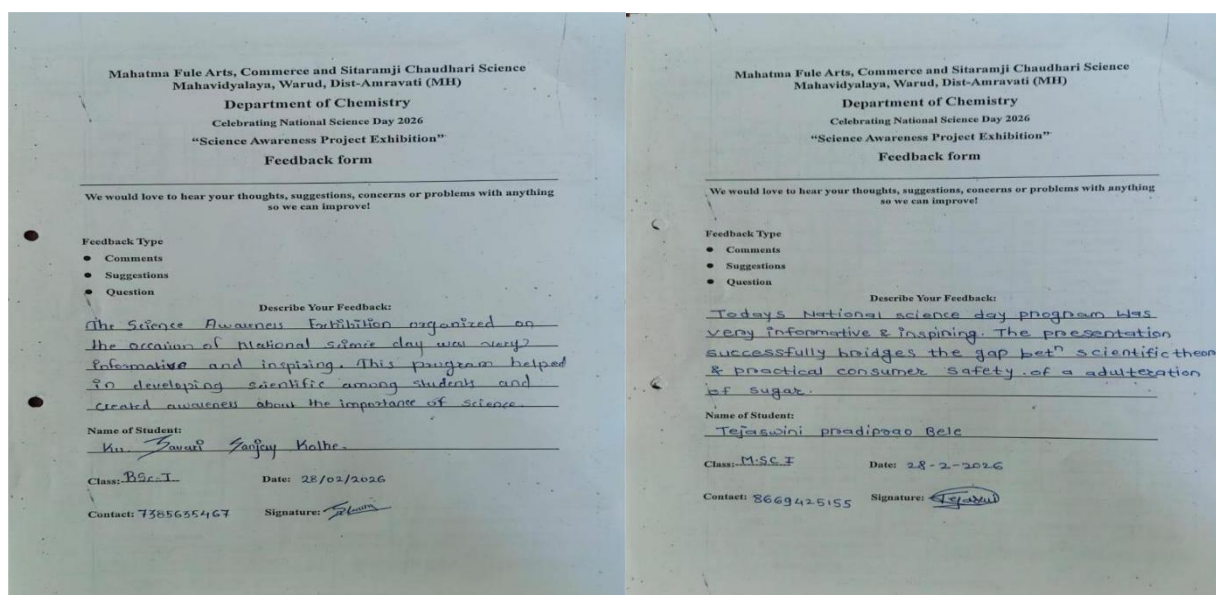 Mahatma Fule Arts, Commerce and Sitaramji Chaudhari Science
Mahavidyalaya, Warud, Dist-Amravati (MH)
Department of Chemistry
Celebrating National Science Day 2026
“Science Awareness Project Exhibition”
Feedback form
We would love to hear your thoughts, suggestions, concerns or problems with anything
so we can improve!
Feedback Type
• Comments
• Suggestions
• Question
Describe Your Feedback:
The Science Awareness Exhibition organized on
the occasion of National science day was very
informative and inspiring. This program helped
in developing scientific among students and
created awareness about the importance of science.
Name of Student:
Ku. Sanjay Kolhe.
Class: BSc-I Date: 28/02/2026
Contact: 7385635467 Signature:
Mahatma Fule Arts, Commerce and Sitaramji Chaudhari Science
Mahavidyalaya, Warud, Dist-Amravati (MH)
Department of Chemistry
Celebrating National Science Day 2026
“Science Awareness Project Exhibition”
Feedback form
We would love to hear your thoughts, suggestions, concerns or problems with anything
so we can improve!
Feedback Type
• Comments
• Suggestions
• Question
Describe Your Feedback:
Todays National science day program was
very informative & inspiring. The presentation
successfully bridges the gap betⁿ scientific theon
& practical consumer safety. of a adulteration
of sugar.
Name of Student:
Tejaswini pradiprao Bele
Class: M.SC I Date: 28-2-2026
Contact: 8669425155 Signature: